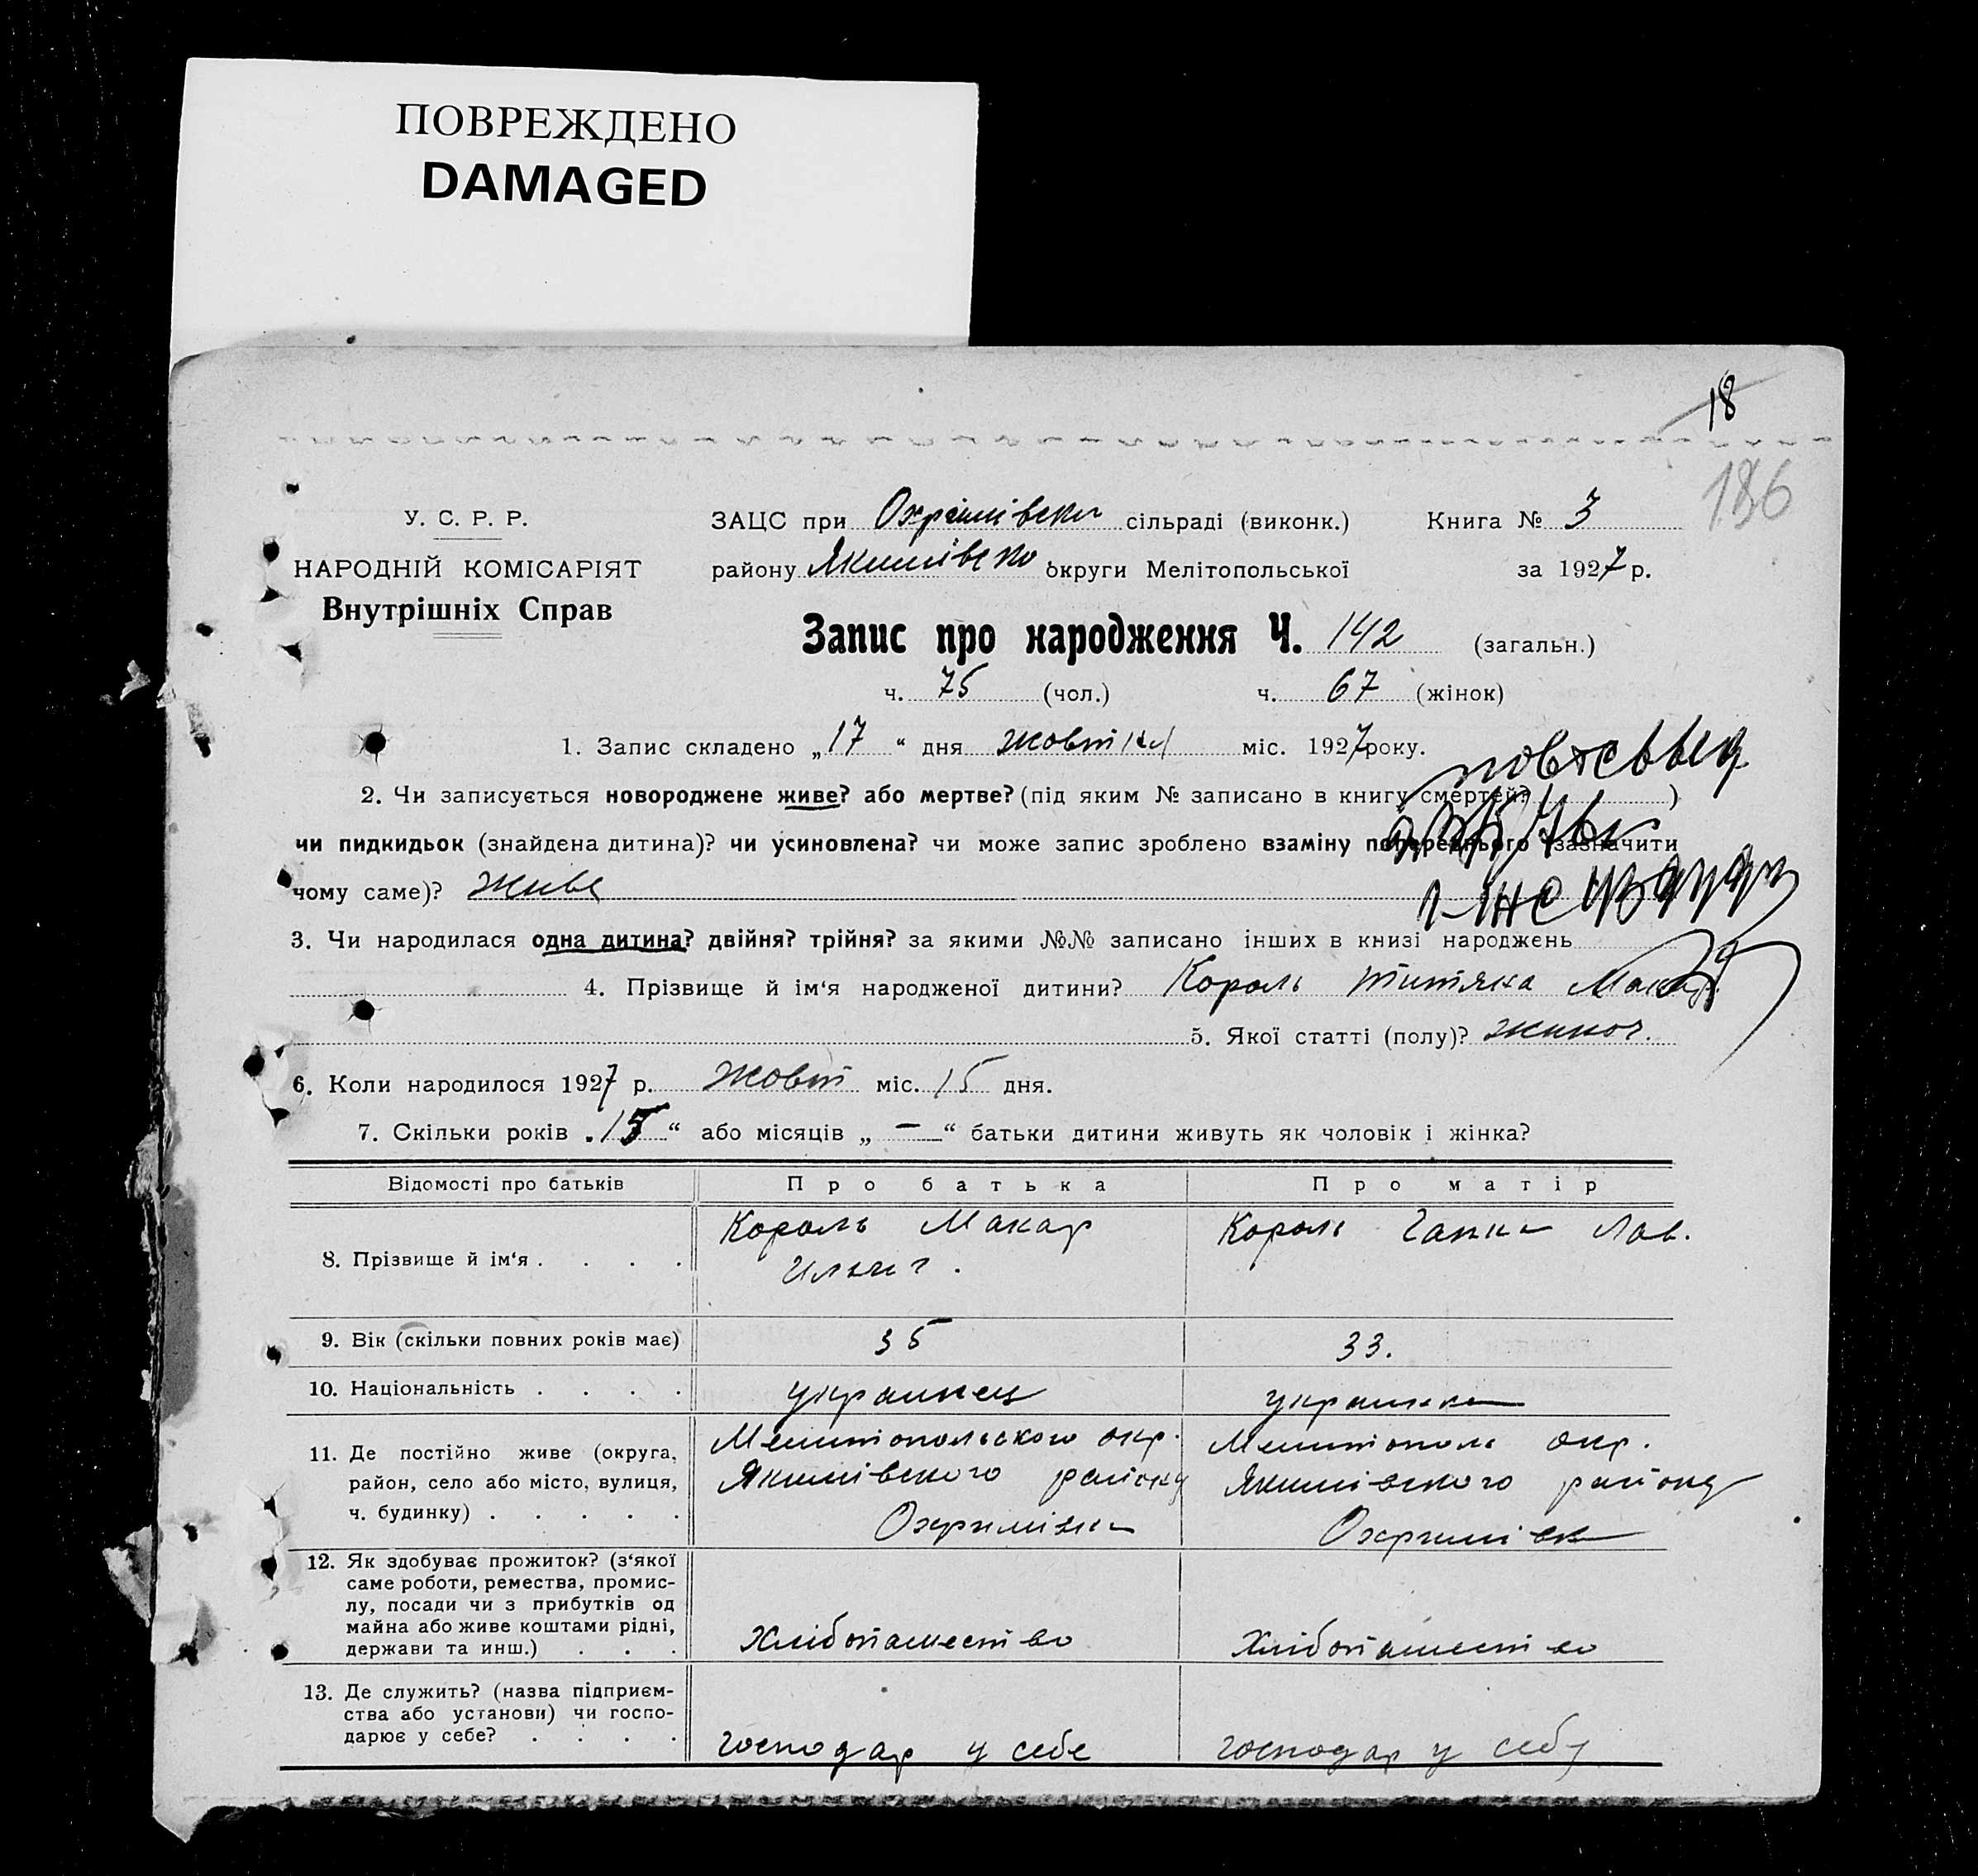 ПОВРЕЖДЕНО
DAMAGED
18
186
У. С. Р. Р.
НАРОДНІЙ КОМІСАРІЯТ
Внутрішніх Справ
ЗАЦС при Охрімівски сільраді (виконк.) Книга № 3
району Якимівсько округи Мелітопольської за 1927 р.
Запис про народження Ч. 142 (загальн.)
ч. 75 (чол.) ч. 67 (жінок)
1. Запис складено „17“ дня жовтня міс. 1927 року.
2. Чи записується новороджене живе? або мертве? (під яким № записано в книгу смертей? )
чи пидкидьок (знайдена дитина)? чи усиновлена? чи може запис зроблено взаміну попереднього (зазначити
чому саме)? живе
3. Чи народилася одна дитина? двійня? трійня? за якими №№ записано інших в книзі народжень
4. Прізвище й ім‘я народженої дитини? Король Титяна Макар.
5. Якої статті (полу)? жиноч.
6. Коли народилося 1927 р. Жовт міс. 15 дня.
7. Скільки років „15“ або місяців „—“ батьки дитини живуть як чоловік і жінка?
Відомості про батьків Про батька Про матір
8. Прізвище й ім‘я . . . . Король Макар Король Гапка Лав.
Ильич.
9. Вік (скільки повних років має) 35 33.
10. Національність . . . . украинец украинка
11. Де постійно живе (округа, Мелитопольского окр. Мелитополь окр.
район, село або місто, вулиця, Якимівского району Якимівского району
ч. будинку) . . . . . Охримівка Охримівк
12. Як здобуває прожиток? (з‘якої
саме роботи, ремества, промис-
лу, посади чи з прибутків од
майна або живе коштами рідні,
держави та инш.) . . . Хлібопашество Хлібопашество
13. Де служить? (назва підприєм-
ства або установи) чи госпо-
дарює у себе? . . . . господар у себе господар у себе